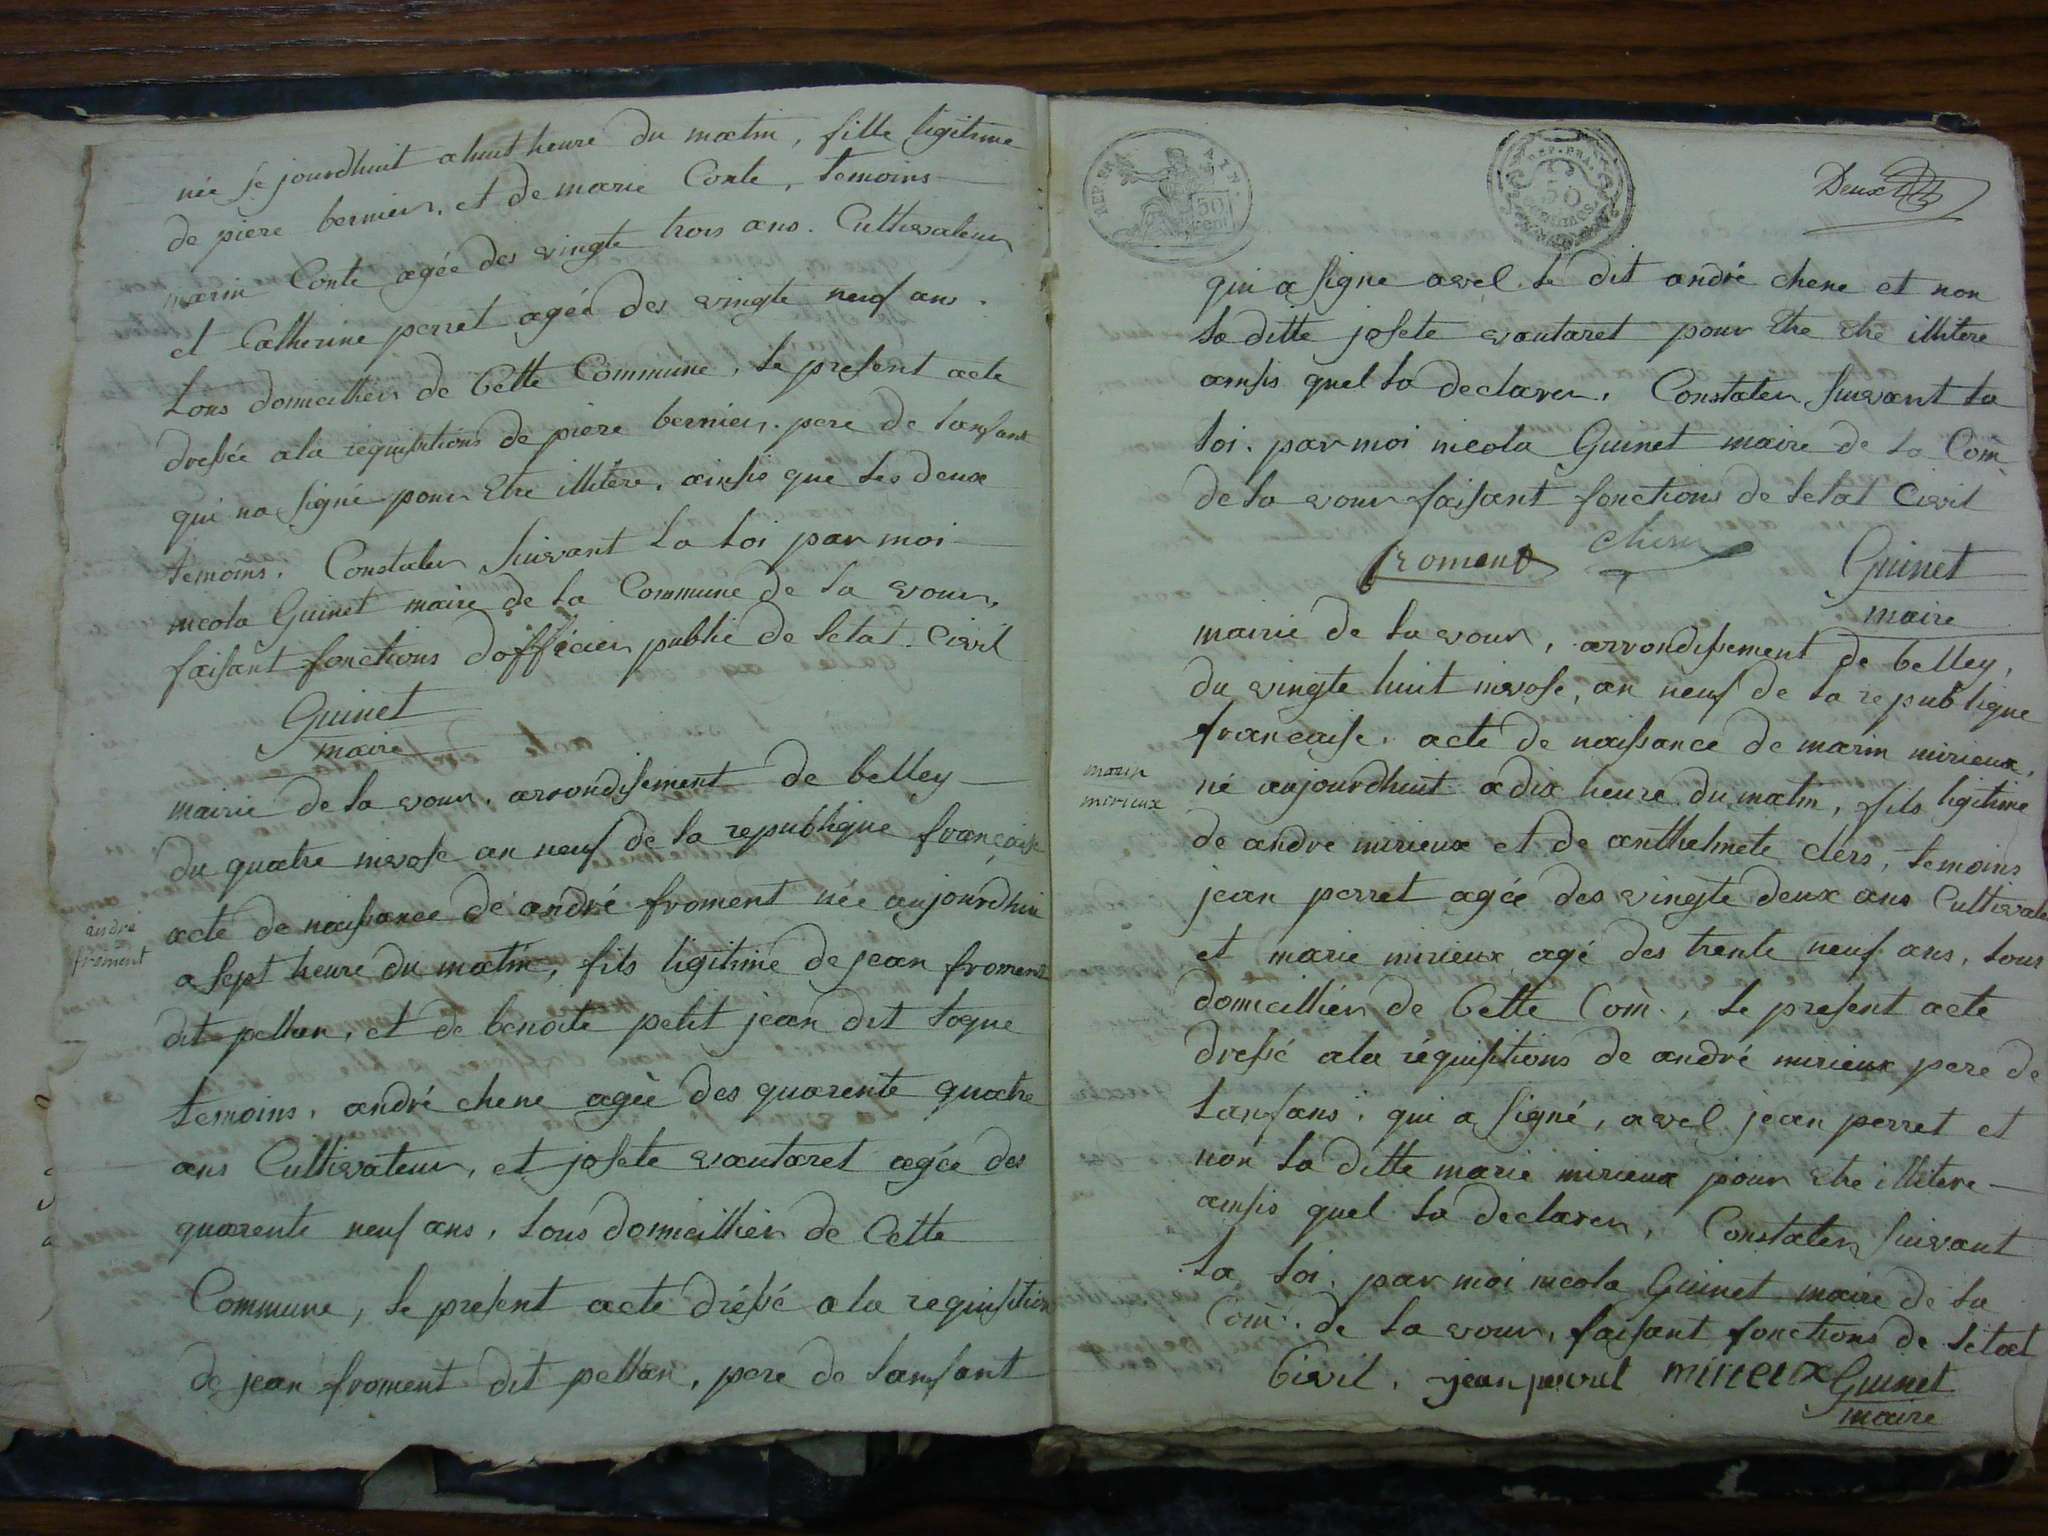 née se jourdhuit a huit heure du matin, fille ligitime
de piere bernier, et de marie Conte, temoins
marin Conte agée des vingte trois ans. Cultivateur
et Catherine perret agée des vingte neuf ans.
tous domicillier de Cette Commune, le present acte
dressée a la réquisitions de piere bernier. pere de lanfant
qui na signé pour etre illitére, ainsis que les deux
temoins. Constater suivant la loi par moi
nicola Guinet maire de la Commune de la vour,
faisant fonctions dofficier public de letat Civil
Guinet
maire
mairie de la vour, arrondisement de belley
du quatre nivose an neuf de la republique française
andré
froment
acte de naissance de andré froment née aujourdhui
a sept heure du matin, fils ligitime de jean froment
dit pellan, et de benoite petit jean dit togne
temoins, andré chene agée des quarente quatre
ans Cultivateur, et josete vautaret agée des
quarente neuf ans, tous domicillier de Cette
Commune, le present acte dréssé a la requisition
de jean froment dit pellan, pere de lanfant
REP. FRA
50
cent
REP. FRA
50
Deux
qui a signe avel le dit andré chene et non
la ditte josete vautaret pour etre etre illitere
ainsis quel la declarer. Constater suivant la
loi. par moi nicola Guinet maire de la Com
de la vour faisant fonctions de letat Civil
froment chene Guinet
maire
mairie de la vour, arrondissement de belley,
du vingte huit nivose, an neuf de la republique
francaise. acte de naissance de marin mirieux,
marin
mirieux
né aujourdhuit a dix heure du matin, fils ligitime
de andre mirieux et de anthelmete clers, temoins
jean perret agée des vingte deux ans Cultivate
et marie mirieux agé des trente neuf ans, tous
domicillier de Cette Com., le present acte
dressé a la réquisitions de andré mirieux pere de
lanfans, qui a signé, avel jean perret et
non la ditte marie mirieux pour etre illitere
ainsis quel la declarer, Constater suivant
la loi. par moi nicola Guinet maire de la
Com. de la vour, faisant fonctions de letat
Civil. jean perret mirieux Guinet
maire